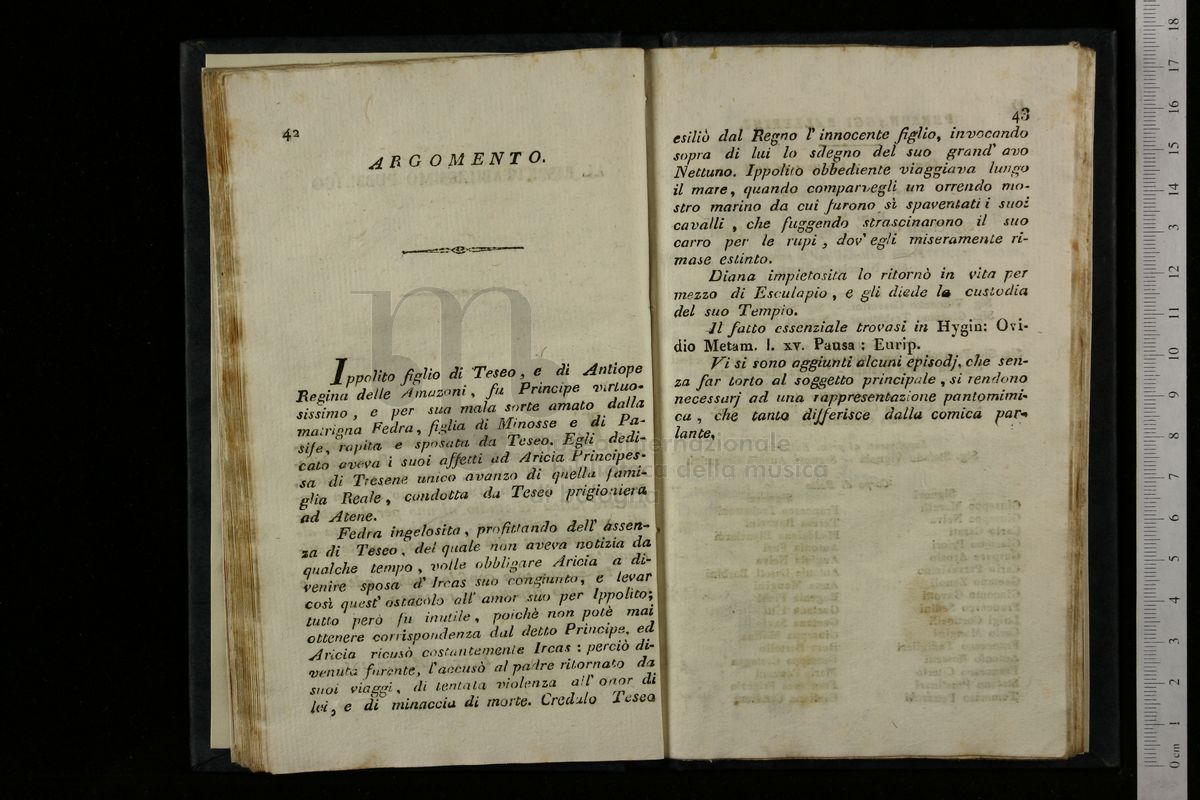 42
ARGOMENTO.
Ippolito figlio di Teseo, e di Antiope
Regina delle Amazoni, fu Principe virtuo-
sissimo, e per sua mala sorte amato dalla
matrigna Fedra, figlia di Minosse e di Pa-
sife, rapita e sposata da Teseo. Egli dedi-
cato aveva i suoi affetti ad Aricia Principes-
sa di Tresene unico avanzo di quella fami-
glia Reale, condotta da Teseo prigioniera
ad Atene.
Fedra ingelosita, profittando dell' assen-
za di Teseo, del quale non aveva notizia da
qualche tempo, volle obbligare Aricia a di-
venire sposa d' Ircas suo congiunto, e levar
così quest' ostacolo all' amor suo per Ippolito;
tutto però fu inutile, poichè non potè mai
ottenere corrispondenza dal detto Principe, ed
Aricia ricusò costantemente Ircas: perciò di-
venuta furente, l'accusò al padre ritornato da
suoi viaggi, di tentata violenza all' onor di
lei, e di minaccia di morte. Credulo Teseo
43
esiliò dal Regno l' innocente figlio, invocando
sopra di lui lo sdegno del suo grand' avo
Nettuno. Ippolito obbediente viaggiava lungo
il mare, quando comparvegli un orrendo mo-
stro marino da cui furono sì spaventati i suoi
cavalli, che fuggendo strascinarono il suo
carro per le rupi, dov' egli miseramente ri-
mase estinto.
Diana impietosita lo ritornò in vita per
mezzo di Esculapio, e gli diede la custodia
del suo Tempio.
Il fatto essenziale trovasi in Hygin: Ovi-
dio Metam. l. xv. Pausa: Eurip.
Vi si sono aggiunti alcuni episodj, che sen-
za far torto al soggetto principale, si rendono
necessarj ad una rappresentazione pantomimi-
ca, che tanto differisce dalla comica par-
lante.